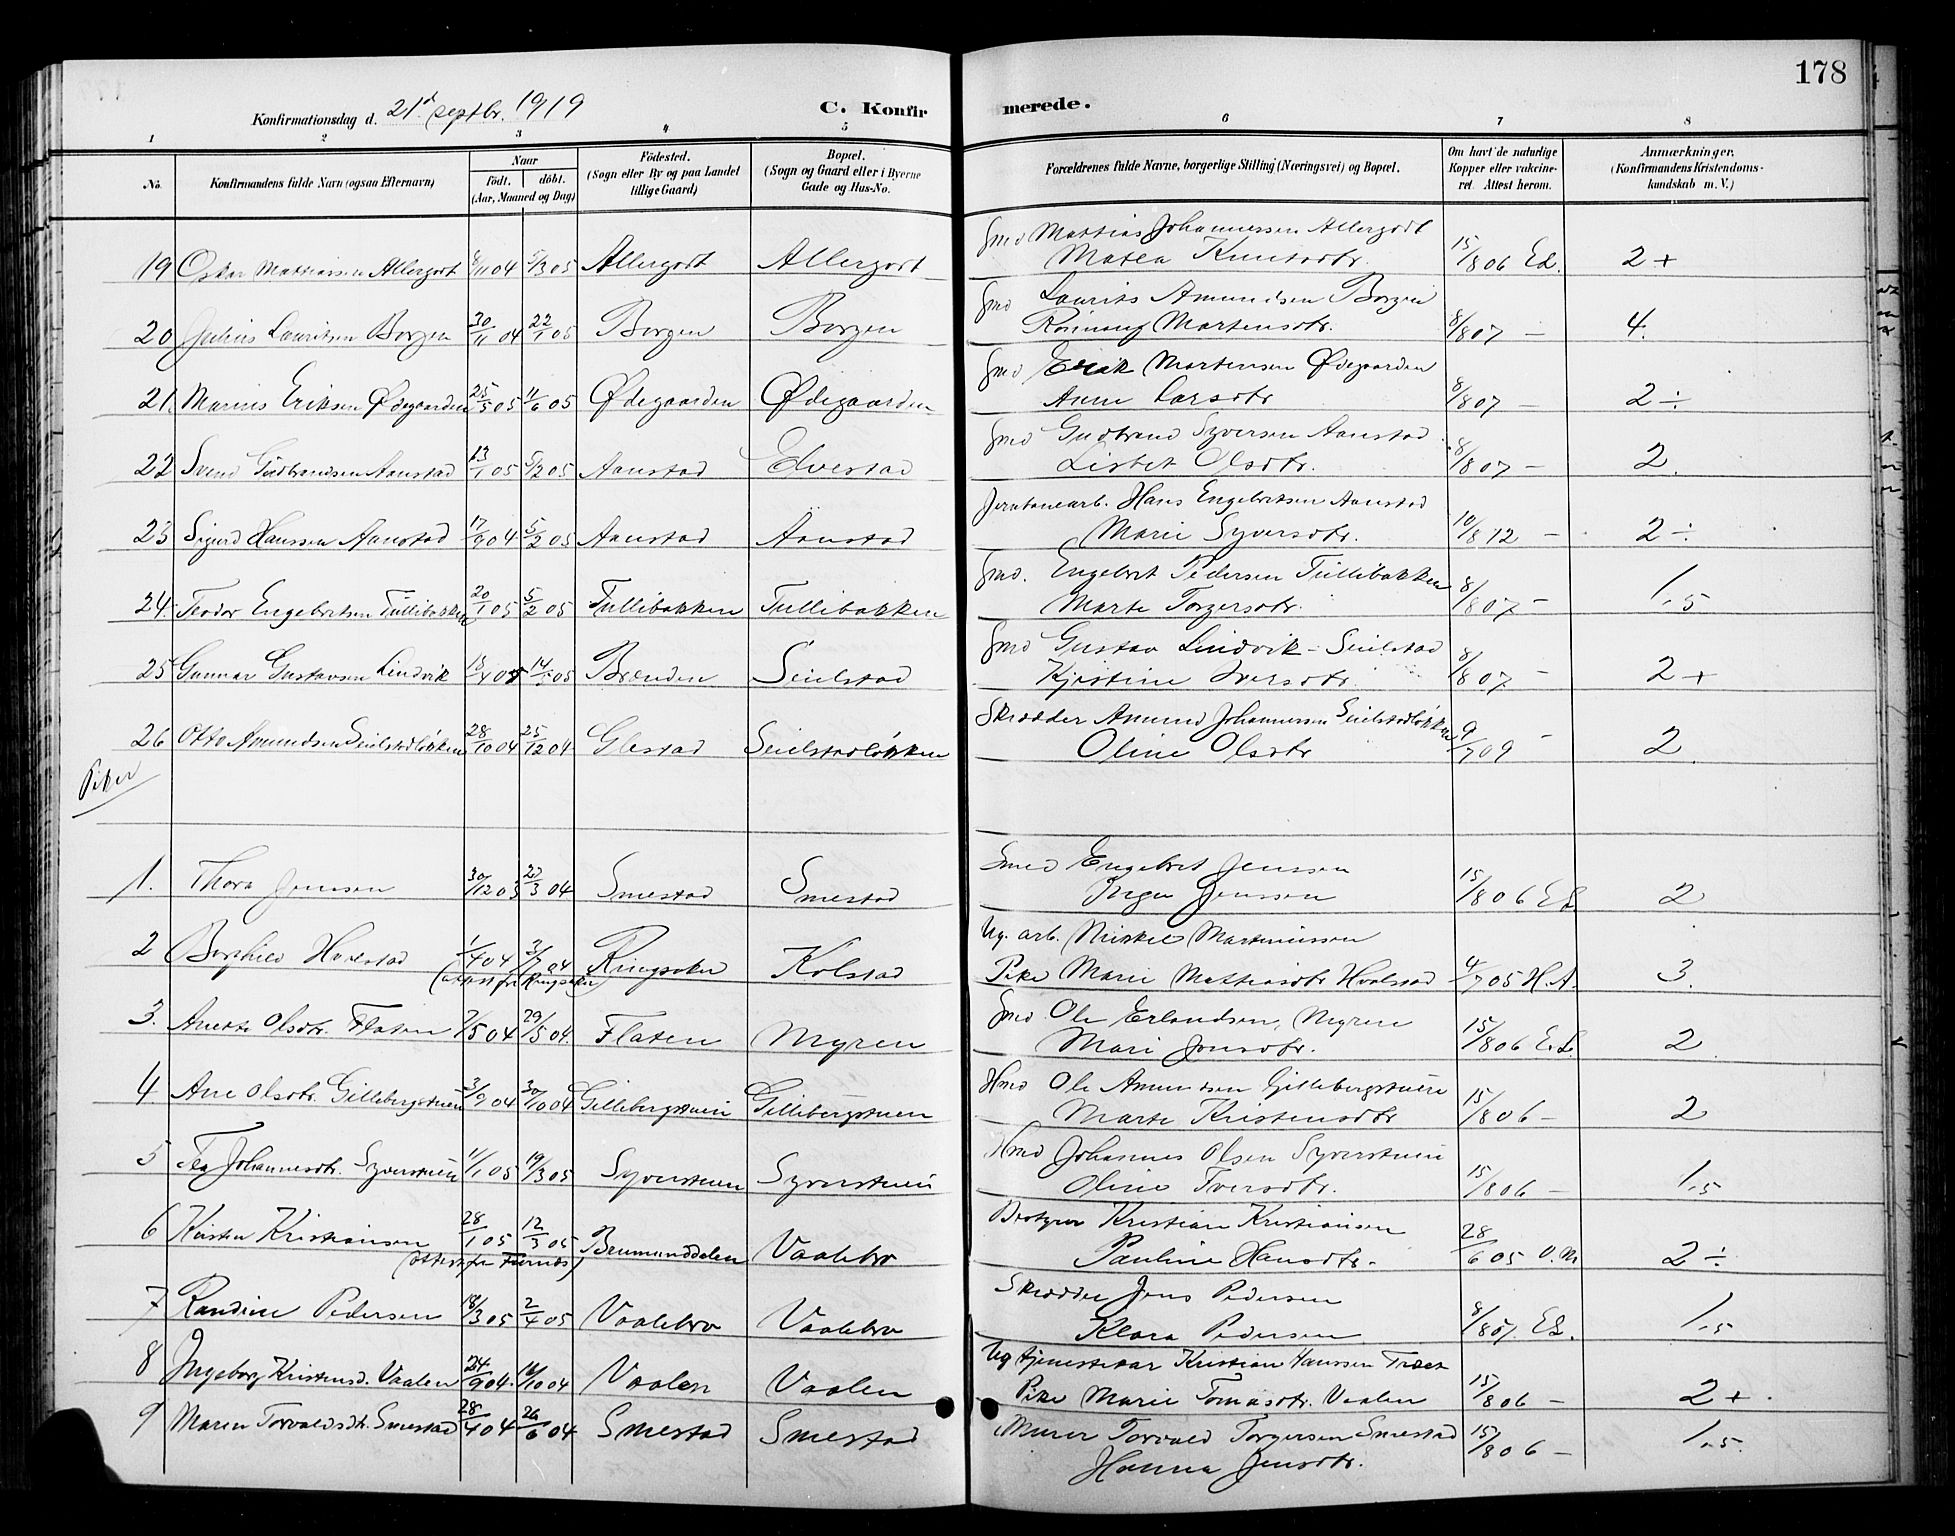 178
Konfirmationsdag d. 21d septbr. 1919
C. Konfirmerede.
1 2 3 4 5 6 7 8
No.
Konfirmandens fulde Navn (ogsaa Efternavn)
Naar
Födt. döbt.
(Aar, Maaned og Dag)
Födested.
(Sogn eller By og paa Landet
tillige Gaard)
Bopæl.
(Sogn og Gaard eller i Byerne
Gade og Hus-No.
Forældrenes fulde Navne, borgerlige Stilling (Næringsvei) og Bopæl.
Om havt de naturlige
Kopper eller vakcine-
ret. Attest herom.
Anmærkninger.
(Konfirmandens Kristendoms-
kundskab m. V.)
Gmd Mattias Johannessen Allergodt
19 Oskar Mattiassen Allergodt 8/11 04 5/3 05 Allergodt Allergodt Matea Knutsdtr. 15/8 06 EL. 2+
Gmd Laurits Amundsen Borgen
20 Julius Lauritsen Borgen 30/11 04 22/1 05 Borgen Borgen Rönnaug Martensdtr. 8/8 07 – 4.
Gmd Erik Martensen Ødegaarden
21. Marius Eriksen Ødegaarden 25/5 05 11/6 05 Ødegaarden Ødegaarden Anne Larsdtr 8/8 07 – 2÷
Gmd Gudbrand Syversen Aanstad
22 Svend Gudbrandsen Aanstad 13/1 05 5/2 05 Aanstad Elvestad Lisbet Olsdtr. 8/8 07 – 2.
Jernbanearb. Hans Engebretsen Aanstad
23 Sigurd Hanssen Aanstad 17/9 04 5/2 05 Aanstad Aanstad Marie Syversdtr. 10/8 12 – 2÷
Gmd. Engebret Pedersen Tullibakken
24. Teodor Engebretsen Tullibakken 20/1 05 5/2 05 Tullibakken Tullibakken Marte Torgersdtr. 8/8 07 – 1,5
Gmd Gustav Lindvik – Seielstad
25 Gunnar Gustavsen Lindvik Brænden Seielstad Kjerstine Iversdtr. 8/8 07 – 2+
Skrædder Amund Johannessen Seielstadløkken
26 Otto Amundsen Seielstadløkken 28/10 04 25/12 04 Glestad Seielstadløkken Oline Olsdtr 9/7 09 – 2.
Piker
Smed Engebret Jenssen
1. Thora Jenssen 30/12 03 Smestad Smestad Inga Jenssen 15/8 06 EL 2
Ug. arb. Mikkel Martinissen
2 Borghild Hvalstad 1/4 04 3/7 04 Ringsaker Kolstad Pike Marie Mattiasdtr Hvalstad 4/7 05 H.A. 3.
(attest fr Ringsaker)
Gmd Ole Erlandsen, Myren
3. Anette Olsdtr. Flaten 7/5 04 29/5 04 Flaten Myren Mari Jonsdtr. 15/8 06 E.L 2.
Hmd Ole Amundsen Gillebergstuen
4 Ane Olsdtr. Gillebergstuen 3/9 04 30/10 04 Gillebergstuen Gillebergstuen Marte Kristensdtr 15/8 06 – 2
Hmd Johannes Olsen Syverstuen
5 Tea Johannesdtr. Syverstuen 11/1 05 19/3 05 Syverstuen Syverstuen Oline Iversdtr. 15/8 06 – 1,5
Bestyrer Kristian Kristiansen
6 Kirsten Kristiansen 28/1 05 12/3 05 Brumunddalen Vaalebro Pauline Hansdtr. 28/6 05 O.M 2÷
(attest fra Furnes)
Skrædder Jens Pedersen
7 Randine Pedersen 18/3 05 2/4 05 Vaalebro Vaalebro Klara Pedersen 8/8 07. EL. 1,5
Ug tjenestekar Kristian Hanssen Træet
8 Ingeborg Kristensd. Vaalen 24/9 04. 16/10 04 Vaalen Vaalen Pike Marie Tomasdtr. Vaalen 15/8 06 – 2+
Murer Torvald Torgersen Smestad
9 Maren Torvaldsdtr. Smestad 28/4 04 26/6 04 Smestad Smestad Hanna Jensdtr. 15/8 06 – 1,5.